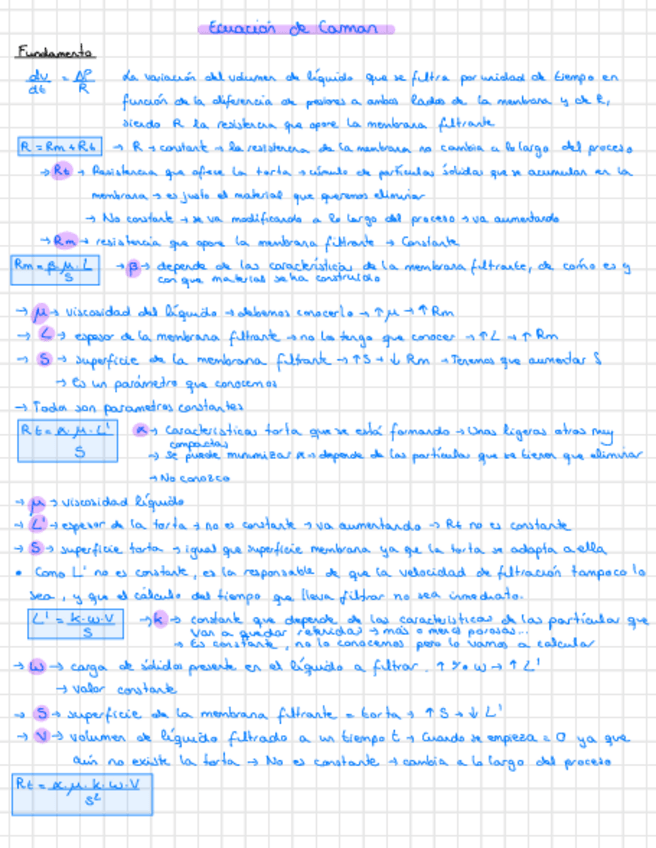 Ecuación de Carman
Fundamento
dv/dt = ΔP/R La variación del volumen de líquido que se filtra por unidad de tiempo en
función de la diferencia de presiones a ambos lados de la membrana y de R,
siendo R la resistencia que opone la membrana filtrante
R = Rm + Rt → R → constante → la resistencia de la membrana no cambia a lo largo del proceso
→ Rt → Resistencia que ofrece la torta → cúmulo de partículas sólidas que se acumulan en la
membrana → es justo el material que queremos eliminar
→ No constante → se va modificando a lo largo del proceso → va aumentando
→ Rm → resistencia que opone la membrana filtrante → Constante
Rm = β·μ·L/S → β → depende de las características de la membrana filtrante, de cómo es y
con que material se ha construido
→ μ → viscosidad del líquido → debemos conocerlo → ↑μ → ↑Rm
→ L → espesor de la membrana filtrante → no lo tengo que conocer → ↑L → ↑Rm
→ S → superficie de la membrana filtrante → ↑S → ↓Rm → Tenemos que aumentar S
→ Es un parámetro que conocemos
→ Todos son parametros constantes
Rt = α·μ·L'/S α → Características torta que se está formando → Unas ligeras otras muy
compactas
→ Se puede minimizar α → depende de las partículas que se tienen que eliminar
→ No conozco
→ μ → viscosidad líquido
→ L' → espesor de la torta → no es constante → va aumentando → Rt no es constante
→ S → superficie torta → igual que superficie membrana ya que la torta se adapta a ella
• Como L' no es constante, es la responsable de que la velocidad de filtración tampoco lo
sea, y que el cálculo del tiempo que lleva filtrar no sea inmediato.
L' = k·ω·V/S → k → constante que depende de las características de las partículas que
van a quedar retenidas → más o menos porosas...
→ Es constante, no la conocemos pero la vamos a calcular
→ ω → carga de sólidos presente en el líquido a filtrar. ↑ % ω → ↑L'
→ valor constante
→ S → superficie de la membrana filtrante = torta → ↑S → ↓L'
→ V → volumen de líquido filtrado a un tiempo t → Cuando se empieza = 0 ya que
aún no existe la torta → No es constante → cambia a lo largo del proceso
Rt = α·μ·k·ω·V/S²